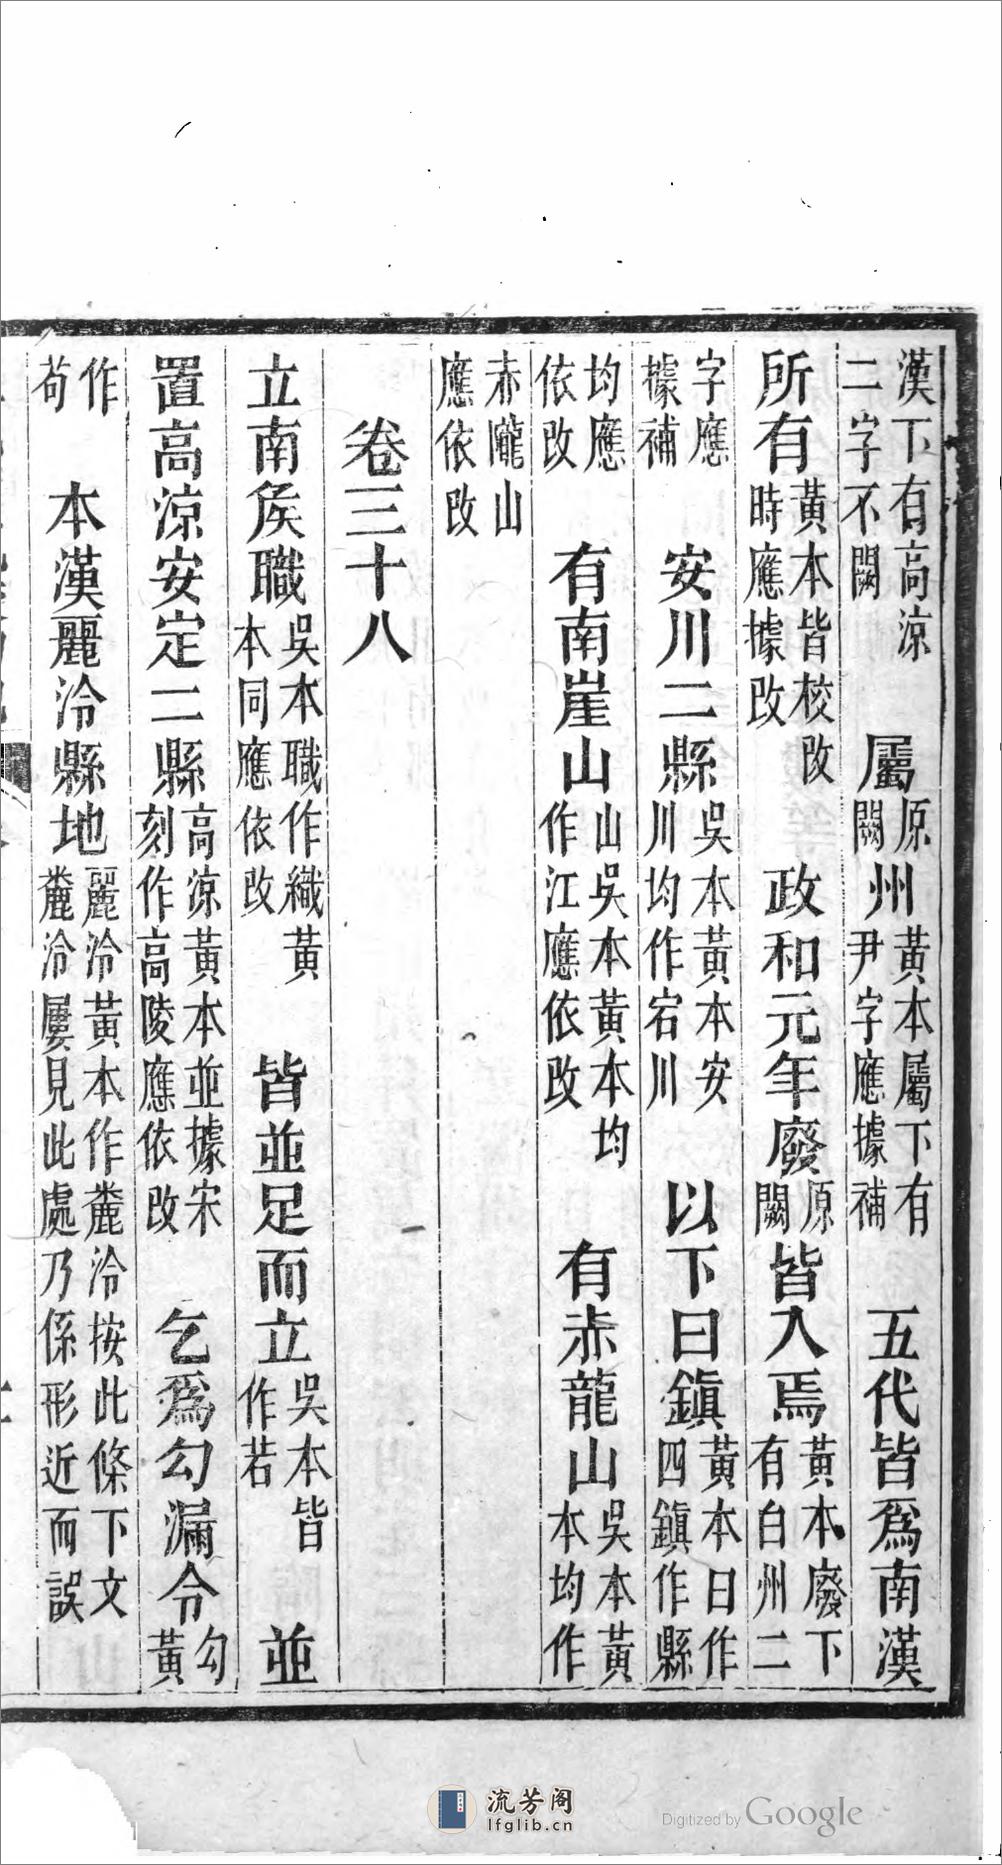 漢下有高涼二字不闕　屬原闕州黃本屬下有尹字應據補　五代皆爲南漢
所有黃本皆校改時應據改　政和元年廢原闕皆入焉黃本廢下有白州二
字應據補　安川二縣吳本黃本安川均作宕川　以下曰鎭黃本日作四鎭作縣
均應依改　有南崖山山吳本黃本均作江應依改　有赤龍山吳本黃本均作
赤隴山應依改
卷三十八
立南矦職吳本職作織黃本同應依改　皆並足而立吳本皆作若　並
置高涼安定二縣高涼黃本並據宋刻作高陵應依改　乞爲勾漏令勾黃
作茍　本漢麗泠縣地麗泠黃本作麊泠按此條下文麊泠屢見此處乃係形近而誤
流芳阁
lfglib.cn
Digitized by Google